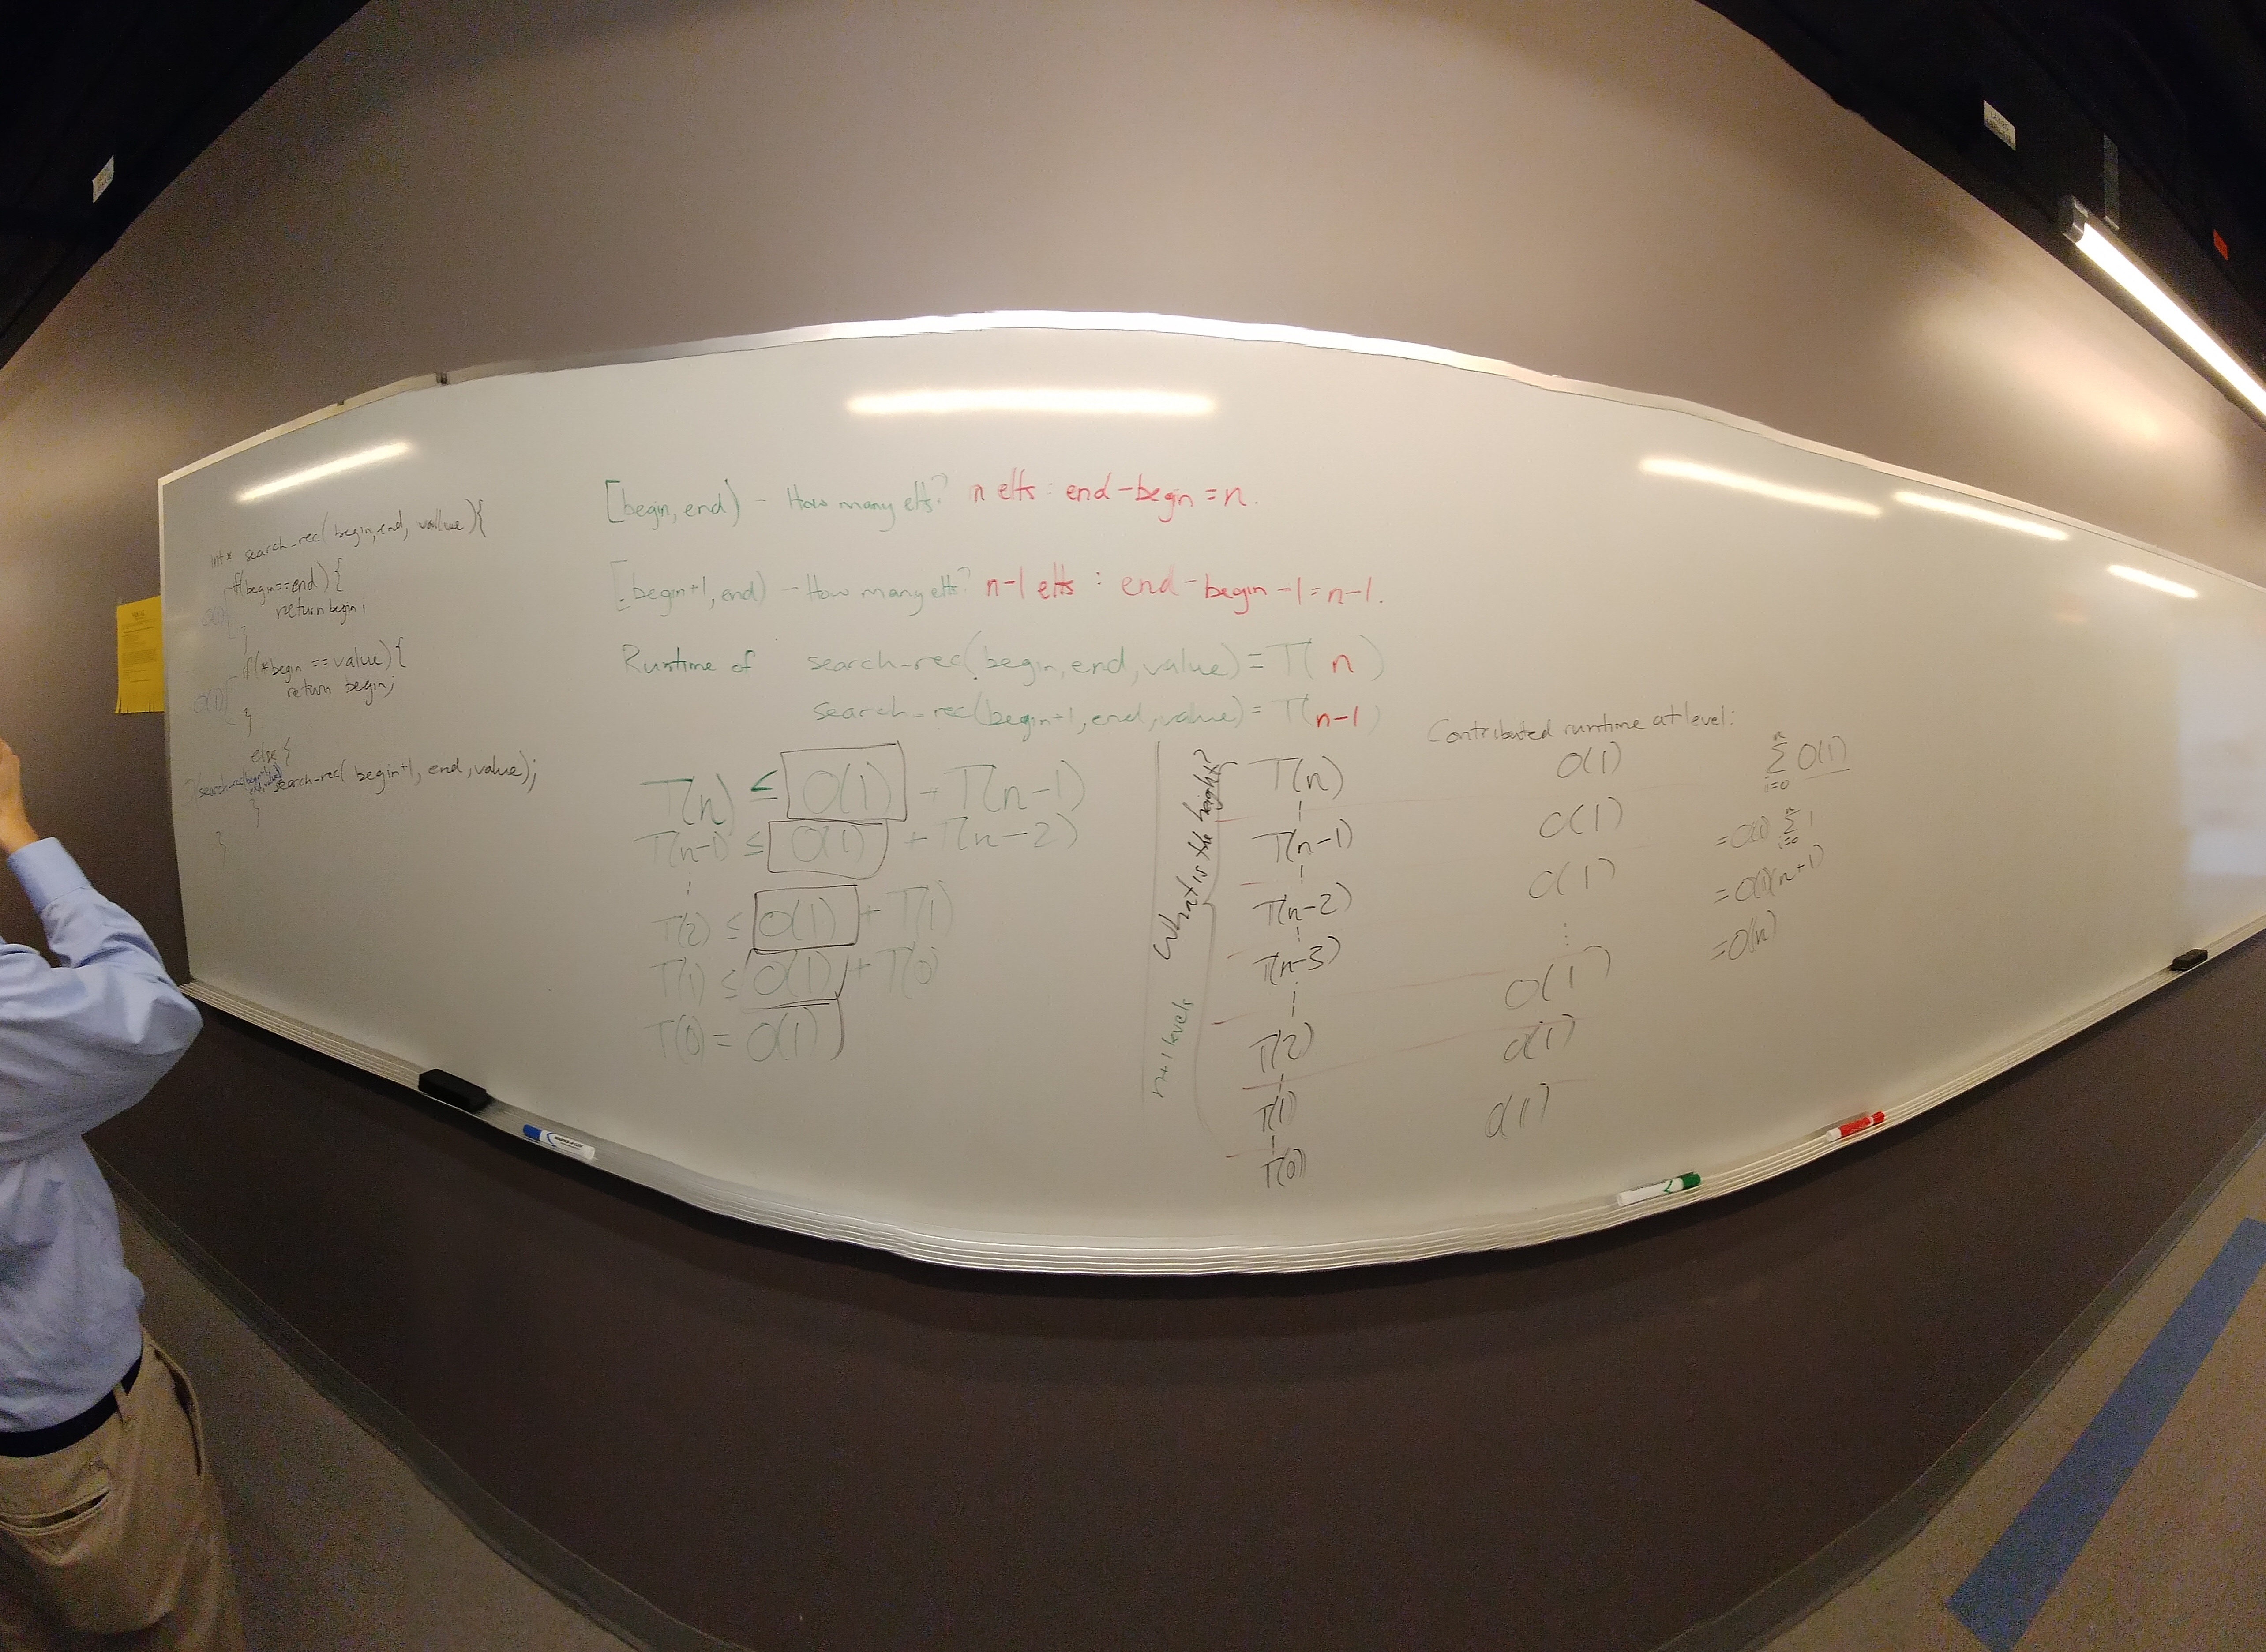 int* search-rec( begin, end, value ){
if(begin==end) {
return begin;
}
O(1)
if(*begin == value) {
return begin;
}
O(1)
else {
search-rec( begin+1, end, value);
}
}
[begin, end) - How many elts? n elts : end-begin = n.
[begin+1, end) - How many elts? n-1 elts : end-begin-1 = n-1.
Runtime of search-rec(begin, end, value) = T( n )
search-rec(begin+1, end, value) = T( n-1 )
T(n) ≤ O(1) + T(n-1)
T(n-1) ≤ O(1) + T(n-2)
⋮
T(2) ≤ O(1) + T(1)
T(1) ≤ O(1) + T(0)
T(0) = O(1)
What is the height?
n+1 levels
T(n)
T(n-1)
T(n-2)
T(n-3)
T(2)
T(1)
T(0)
Contributed runtime at level:
O(1)
O(1)
O(1)
⋮
O(1)
O(1)
O(1)
n
Σ O(1)
i=0
n
= O(1) Σ 1
i=0
= O(1)(n+1)
= O(n)